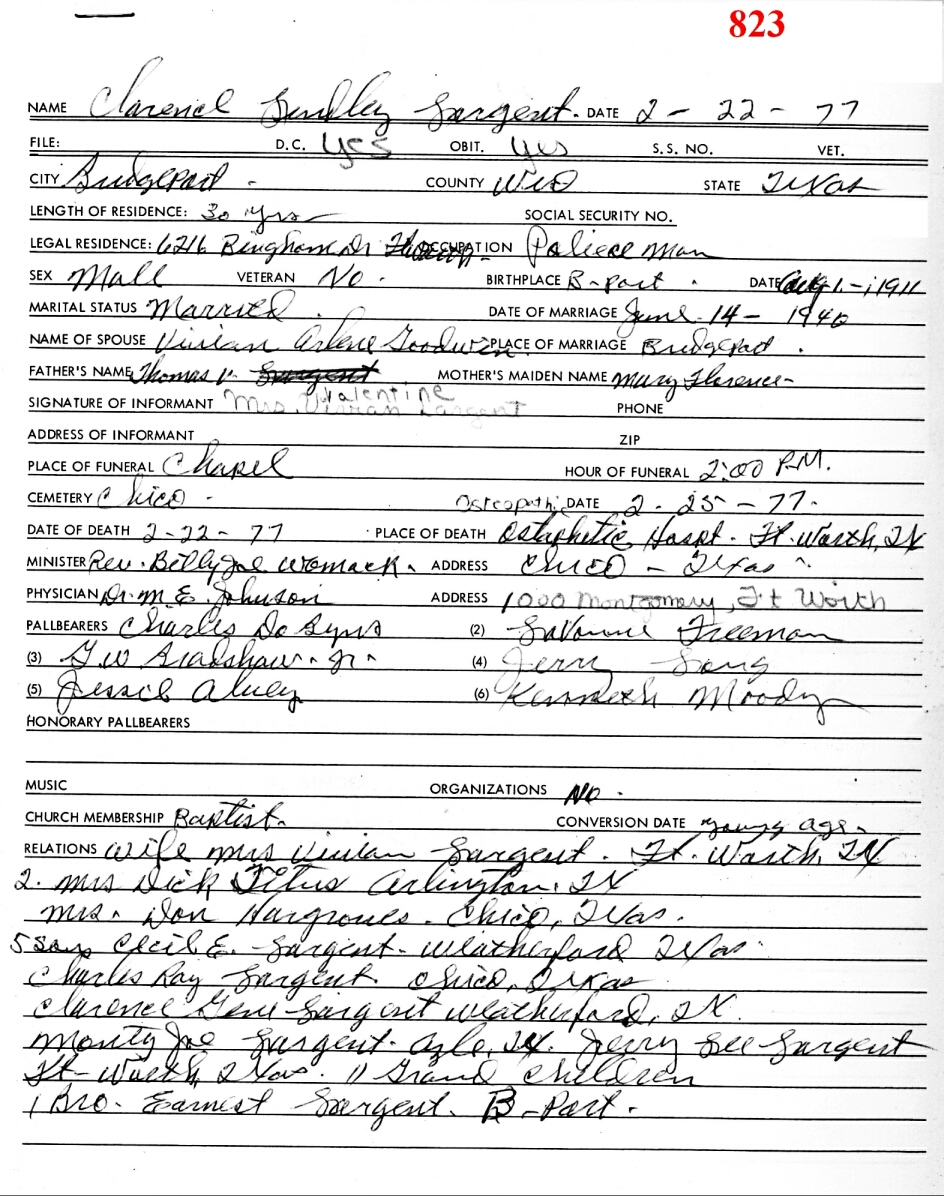 823
NAME Clarence Lindley Sargent. DATE 2 - 22 - 77
FILE: D.C. yes OBIT. yes S.S. NO. VET.
CITY Bridgeport - COUNTY Wise STATE Texas
LENGTH OF RESIDENCE: 30 yrs SOCIAL SECURITY NO.
LEGAL RESIDENCE: 6216 Bingham Dr OCCUPATION Poliece man
SEX Male VETERAN No. BIRTHPLACE B-port. DATE Aug 1. - 1911
MARITAL STATUS Married. DATE OF MARRIAGE June 14 - 1940
NAME OF SPOUSE Vivian Arlene Goodwin PLACE OF MARRIAGE Bridgeport.
FATHER'S NAME Thomas V. Sargent MOTHER'S MAIDEN NAME Mary Florence -
Valentine
SIGNATURE OF INFORMANT Mrs. Vivian Sargent PHONE
ADDRESS OF INFORMANT ZIP
PLACE OF FUNERAL Chapel HOUR OF FUNERAL 2:00 P.M.
CEMETERY Chico - Osteopathic DATE 2 - 25 - 77.
DATE OF DEATH 2 - 22 - 77 PLACE OF DEATH Ostaphetic Hospt. Ft. Worth, TX
MINISTER Rev. Billy Joe Womack. ADDRESS Chico - Texas
PHYSICIAN Dr. M. E. Johnson ADDRESS 1000 Montgomery, Ft Worth
PALLBEARERS Charles (2) LaVonne Freeman
(3) G.W Bradshaw. Jr. (4) Jerry Long
(5) Jessie (6) Kenneth Moody
HONORARY PALLBEARERS
MUSIC ORGANIZATIONS No.
CHURCH MEMBERSHIP Baptist. CONVERSION DATE young age.
RELATIONS Wife Mrs Vivian Sargent. Ft. Worth, TX
2. Mrs Dick Titus Arlington, TX
Mrs. Don Hargroves. Chico, Texas.
5 Sons Cecil E. Sargent - Weatherford Texas.
Charles Ray Sargent Chico, Texas
Clarence Gene Sargent Weatherford, TX.
Monty Joe Sargent. Azle, TX. Jerry Lee Sargent
Ft- Worth, Texas. 11 Grand Children
1 Bro. Earnest Sargent. B-Port.